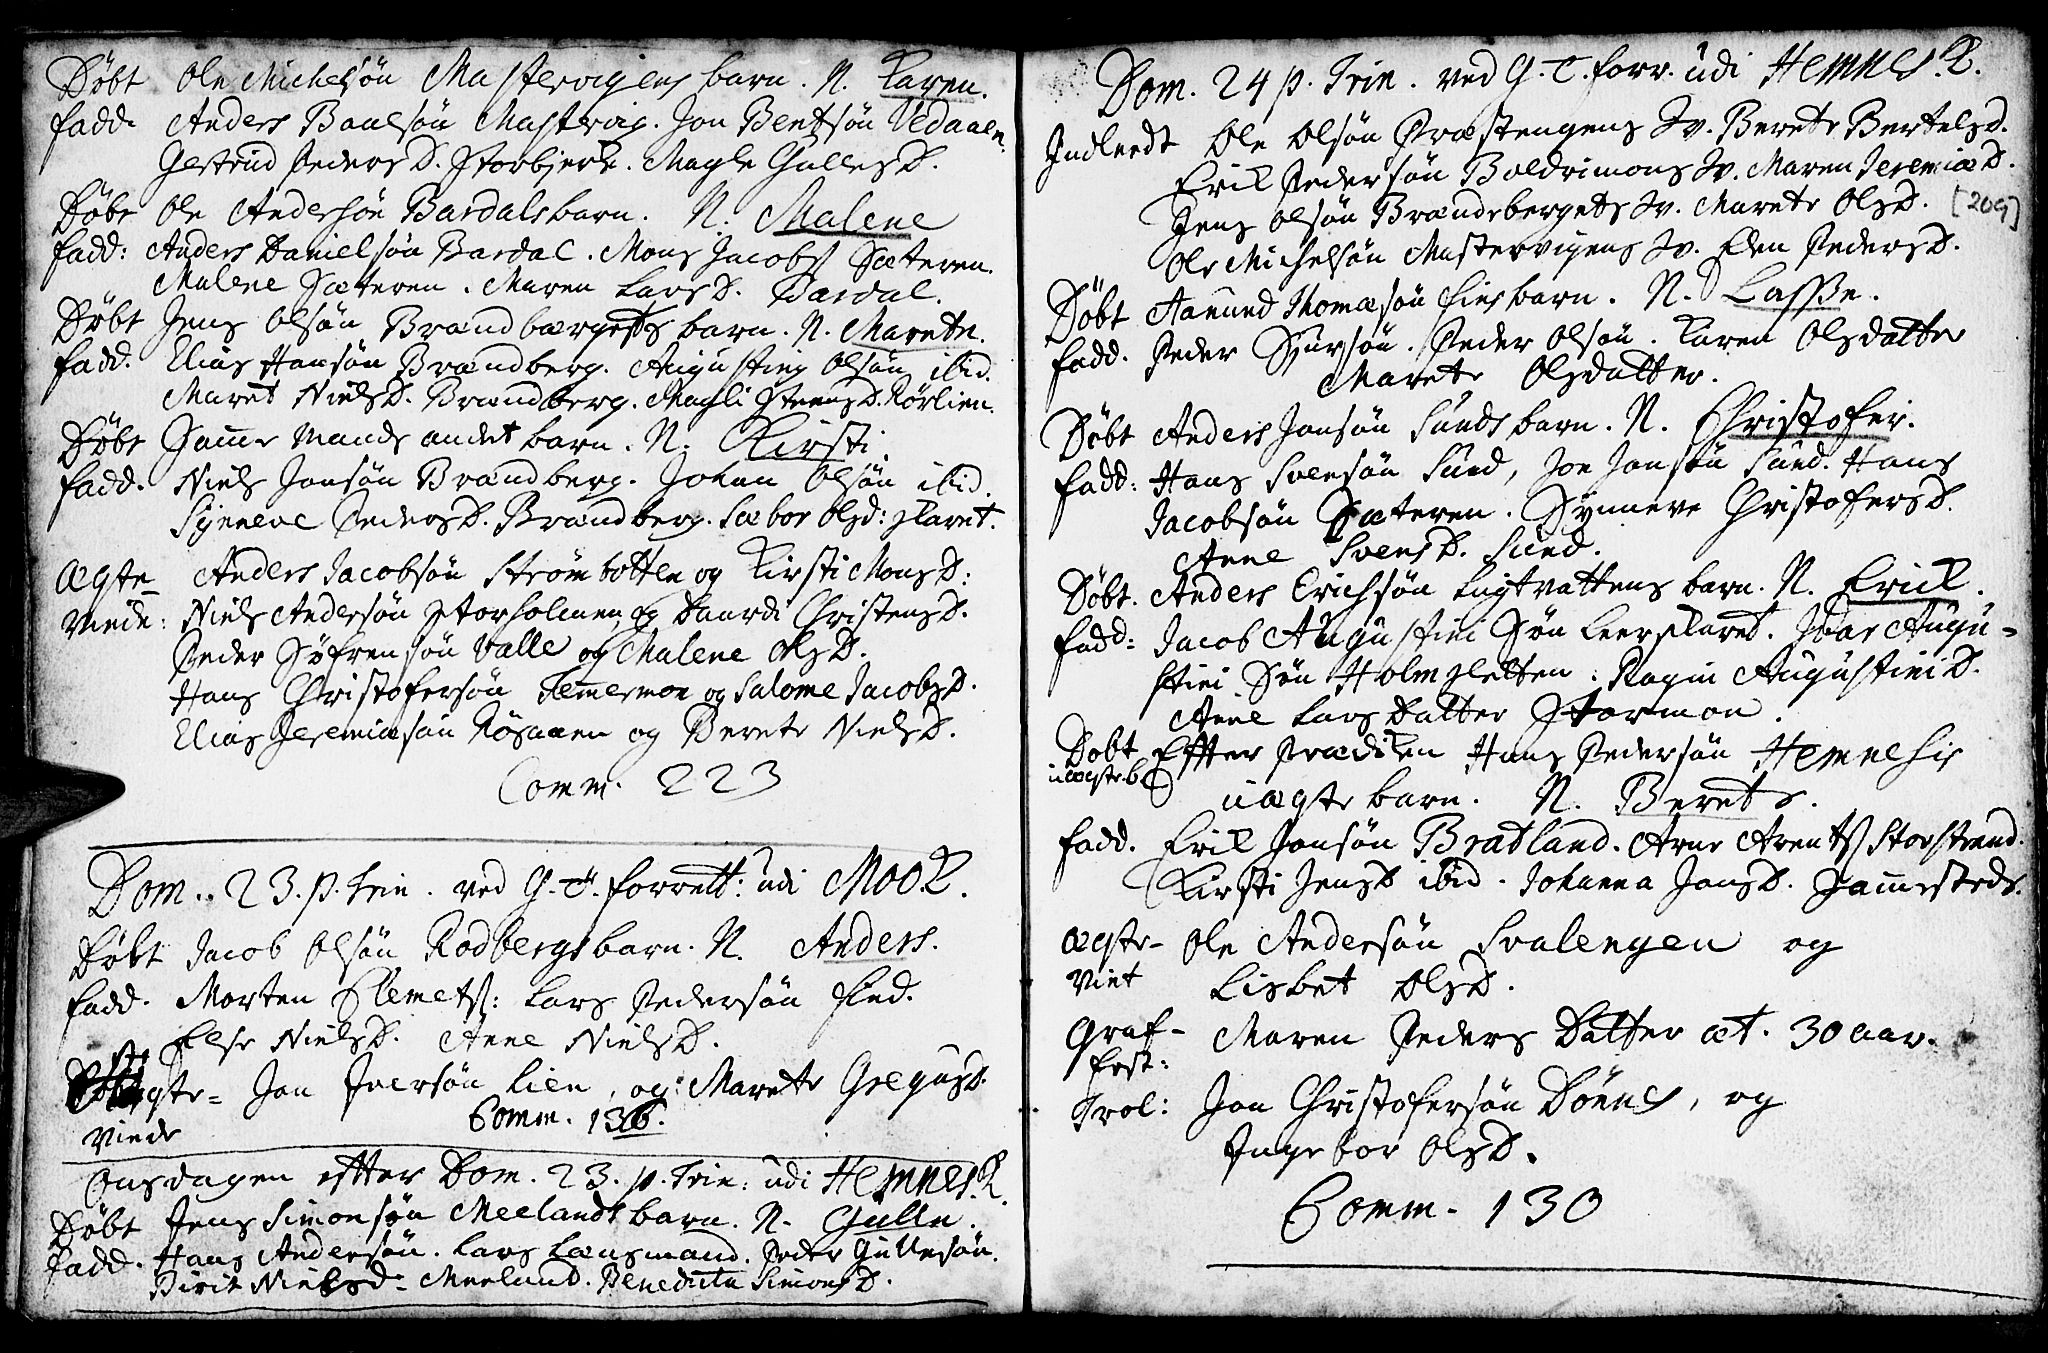 Döbt Ole Michelsön Mastervigens barn. N. Karen.
fadd. Anders Baulsön Mastervig. Jon Bentsön Vedaaen.
Gertrud Peders D. Storbierk. Magle Gulles D.
Döbt Ole Andersön Bardals barn. N. Malene
fadd: Anders Danielsön Bardal. Mons Jacobs Sæteren.
Malene Sæteren. Maren Lars D. Bardal.
Döbt Jens Olsön Brændbærgets barn. N. Marete.
fadd. Elias Hansön Brændberg. Augusting Olsön ibid.
Maret Niels D. Brændberg. Magli Steens D. Rörlien.
Döbt Samme Mands andet barn. N. Kirsti.
fadd. Niels Jonsön Brændberg. Johan Olsön ibid.
Synneve Peders D. Brændberg. Sæbor Olsd: Klaret.
Ægte- Anders Jacobsön Strömbotten og Kirsti Mons D:
viede: Niels Andersön Storholmen og Baardi Christens D.
Peder Söfrensön Valle og Malene Ols D.
Hans Christofersön Temmermoe og Salome Jacobs D.
Elias Jeremiæsön Rösaaen og Berete Niels D.
Comm. 223
Dom. 23. p. Trin. ved G. T. forrett: udi Moo K.
Döbt Jacob Olsön Rodbergs barn. N. Anders.
fadd. Morten Clemets: Lars Pedersön
Else Niels D. Anne Niels D.
Ægte- Jon Iversön Lien, og Marete Gregus D.
viede Comm. 136.
Onsdagen efter Dom. 23. p. Trin: udi Hemnes. K.
Döbt Jens Simonsön Meelands barn. N. Gulle.
Fadd. Hans Andersön. Lars Lænsmand. Peder Gullesön.
Birit Nielsd. Meeland. Benedicta Simons D.
Dom. 24 p. Trin. ved G. T. forr. udi Hemnes. K.
Indleedt Ole Olsön Præstengens Hv. Berete Bertels D.
Erik Pedersön Boldrimons Hv. Maren Jeremiæ D.
Jens Olsön Brændebergets Hv. Marete Ols D. [209]
Ole Michelsön Mastervigens Hv. Elen Peders D.
Döbt Aamund Thomæsön barn. N. Lasse.
fadd. Peder Siursön. Peder Olsön. Karen Olsdatter
Marete Olsdatter.
Döbt Anders Jonsön Sunds barn. N. Christofer.
fadd: Hans Svensön Sund, Jon Jonsön Sund. Hans
Jacobsön Sæteren. Synneve Christofers D.
Anne Svens D. Sund.
Döbt. Anders Erichsön Lugtvattens barn. N. Erick.
fadd: Jacob Augustini Sön Leerskaret. Ivar Augu-
stini Sön Holmsletten. Ragni Augustini D.
Anne Lars Datter Stormon.
Döbt Effter Prædiken Hans Pedersön Hemnes his
uægte b.
uægte barn. N. Berete.
fadd. Erik Jonsön Bratland. Arne Arents Storstrand.
Kirsti Jens D ibid. Johanna Jons D. Sammesteds.
Ægte- Ole Andersön Svalengen og
viet Lisbet Ols D.
Graf- Maren Peders Datter æt. 30 aar.
fest:
Trol: Jon Christofersön Dönnes, og
Ingebor Ols D.
Comm. 130